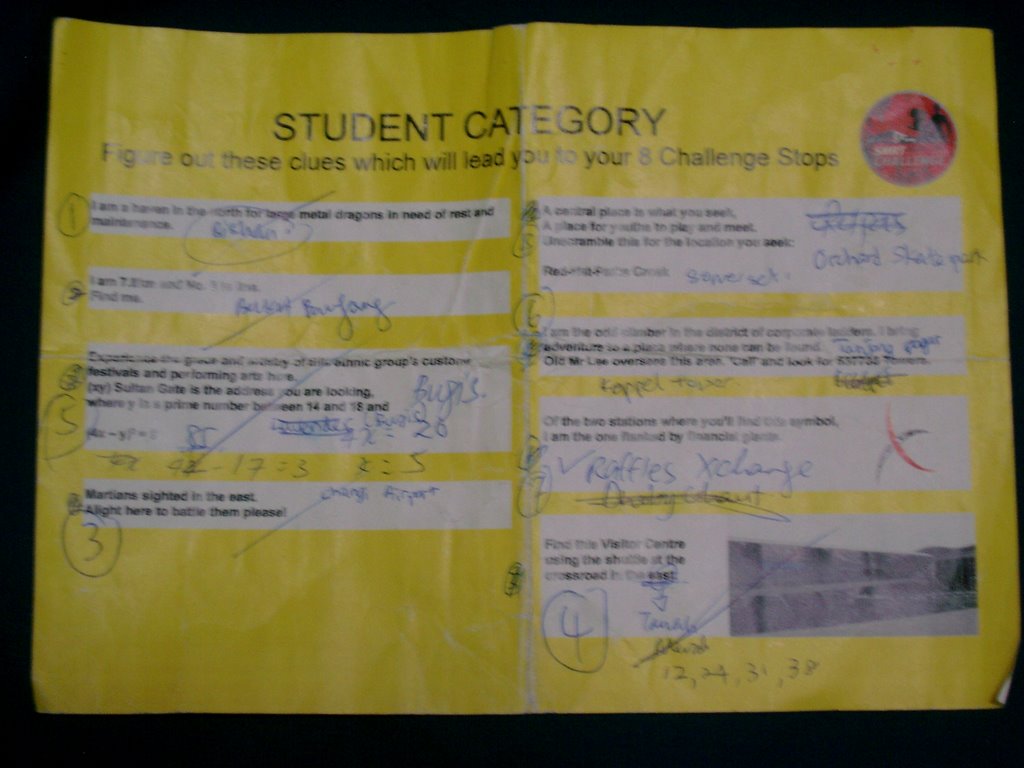 STUDENT CATEGORY
Figure out these clues which will lead you to your 8 Challenge Stops
SMRT
CHALLENGE
1
I am a haven in the north for large metal dragons in need of rest and
maintenance.
Bishan
I am 7.8km and No. in line.
Find me.
Bukit Panjang
Experience the grace and artistry of this ethnic group's customs,
festivals and performing arts here.
(xy) Sultan Gate is the address you are looking,
where y is a prime number between 14 and 18 and
Bugis.
5
(4x – y)² =
85
Bugis
4x = 20
4x - 17 = 3
x = 5
Martians sighted in the east.
Alight here to battle them please!
Changi Airport
3
A central place is what you seek,
A place for youths to play and meet.
Unscramble this for the location you seek:
Orchard Skate park
Somerset
6
I am the odd climber in the district of corporate ladders. I bring
adventure to a place where none can be found.
Tanjong pagar
Old Mr Lee oversees this area. "Call" and look for
Keppel tower
Of the two stations where you'll find this symbol,
I am the one flanked by financial giants.
✓ Raffles Xchange
7
Find this Visitor Centre
using the shuttle at the
crossroad in the east.
8
4
Tanah
Merah
12, 24, 31, 38